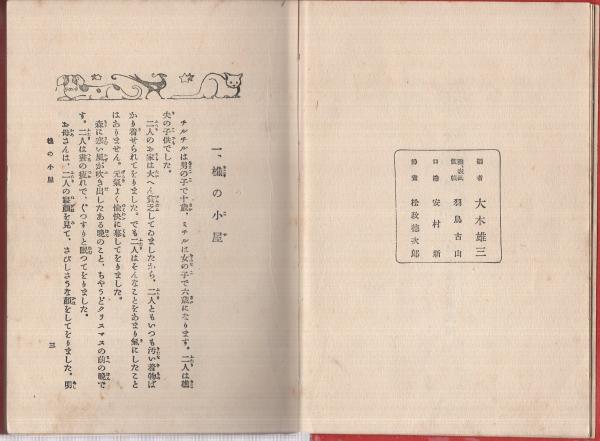 編者　大木雄三
装幀　羽鳥古山
口繪　安村新
揷畫　松政德次郎
一、樵の小屋
チルチルは男の子で十歲、ミチルは女の子で六歲になります。二人は樵
夫の子供でした。
二人のお家は大へん貧乏してゐましたから、二人ともいつも汚い着物ば
かり着せられてをりました。でも二人はそんなことをあまり氣にしたこと
はありません。元氣よく愉快に暮してをりました。
森に寒い風が吹き出したある晩のこと、ちやうどクリスマスの前の晩で
す。二人は晝の疲れで、ぐつすりと眠つてをりました。
お母さんは、二人の寢顏を見て、さびしさうな顏をしてをりました。明
樵の小屋
三